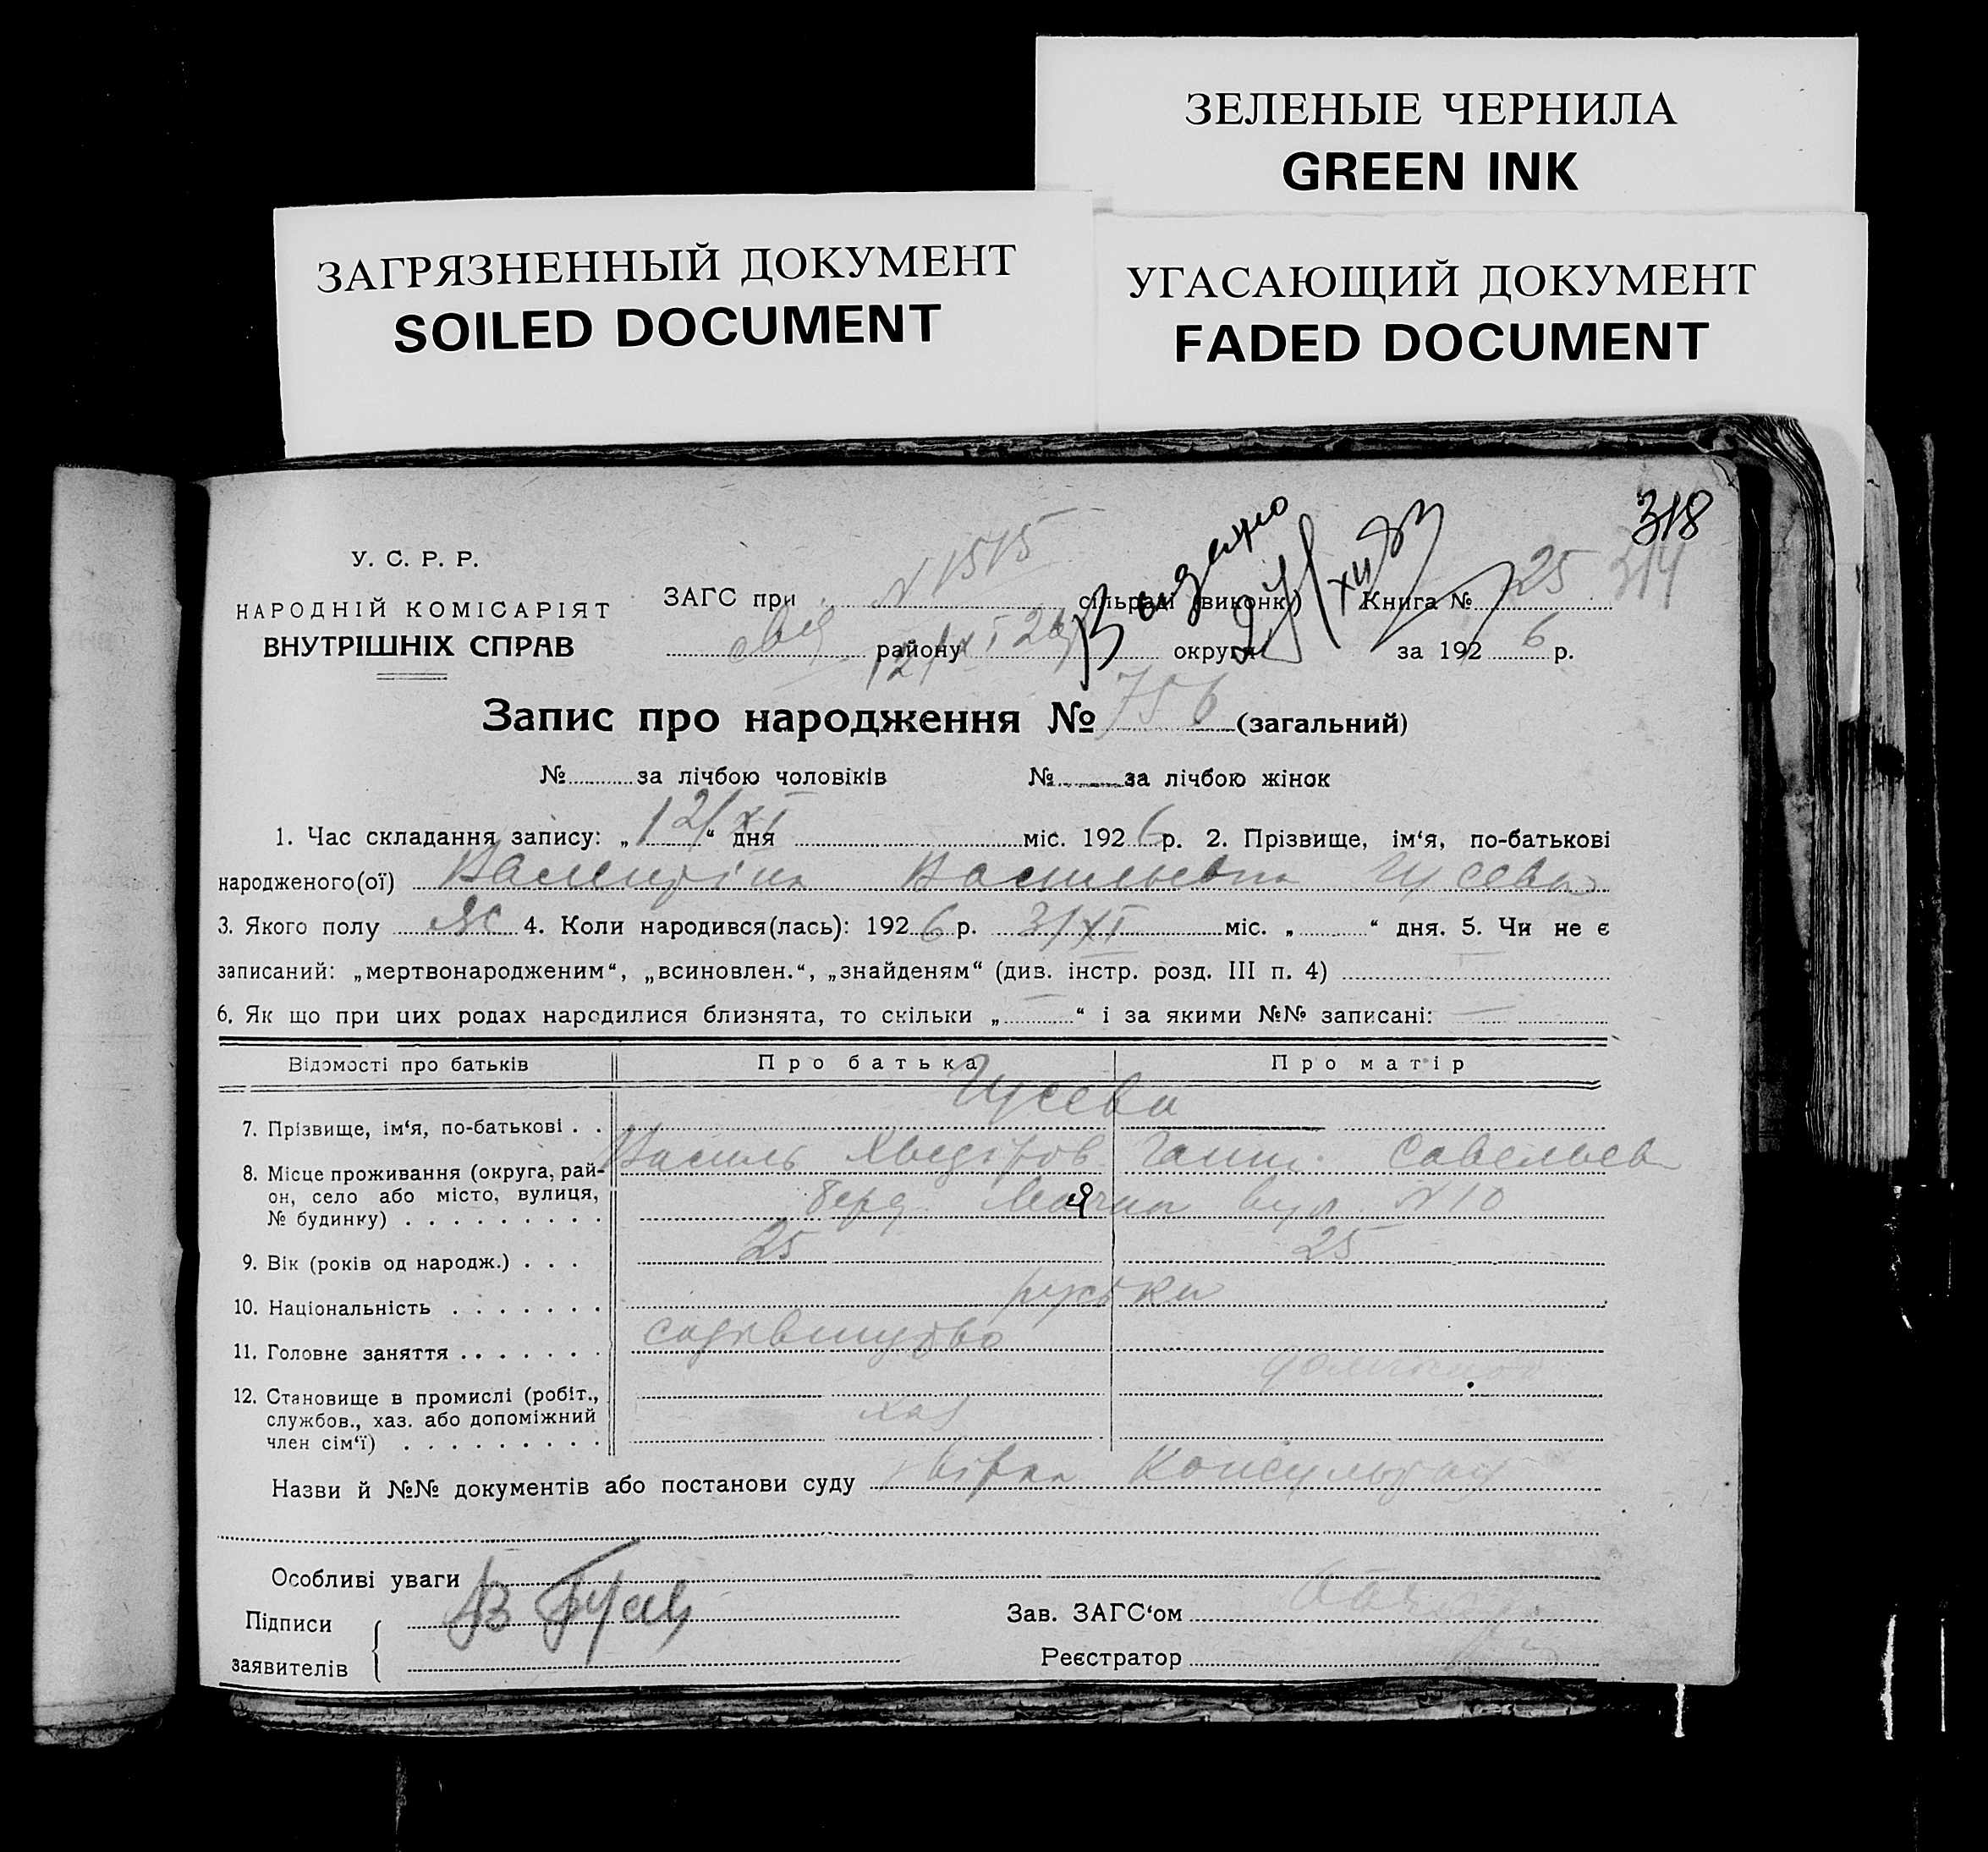 ЗЕЛЕНЫЕ ЧЕРНИЛА
GREEN INK
ЗАГРЯЗНЕННЫЙ ДОКУМЕНТ
SOILED DOCUMENT
УГАСАЮЩИЙ ДОКУМЕНТ
FADED DOCUMENT
318
314
У. С. Р. Р.
НАРОДНІЙ КОМІСАРІЯТ
ВНУТРІШНІХ СПРАВ
ЗАГС при N 1515 сільраді (виконк.) Книга № 25
району 12/XI 26 округи за 1926 р.
Запис про народження № 756 (загальний)
№ за лічбою чоловіків № за лічбою жінок
1. Час складання запису: „12/XI“ дня міс. 1926 р. 2. Прізвище, ім‘я, по-батькові
народженого(ої) Валентіна Васильевна Гусева
3. Якого полу ж 4. Коли народився(лась): 1926 р. 3/XI міс. „ “ дня. 5. Чи не є
записаний: „мертвонародженим“, „всиновлен.“, „знайденям“ (див. інстр. розд. III п. 4) —
6. Як що при цих родах народилися близнята, то скільки „—“ і за якими №№ записані: —
Відомості про батьків Про батька Про матір
Гусева
7. Прізвище, ім‘я, по-батькові . .
Василь Хведіров Ганна Савельев
8. Місце проживання (округа, рай-
он, село або місто, вулиця,
№ будинку) . . . . . . . . . вул. N 10
9. Вік (років од народж.) . . . 25 25
10. Національність . . . . . . . руська
11. Головне заняття . . . . . . . садівництво
12. Становище в промислі (робіт.,
службов., хаз. або допоміжний
член сім‘ї) . . . . . . . . . хаз
Назви й №№ документів або постанови суду
Особливі уваги
Підписи
заявителів
Зав. ЗАГС‘ом
Реєстратор